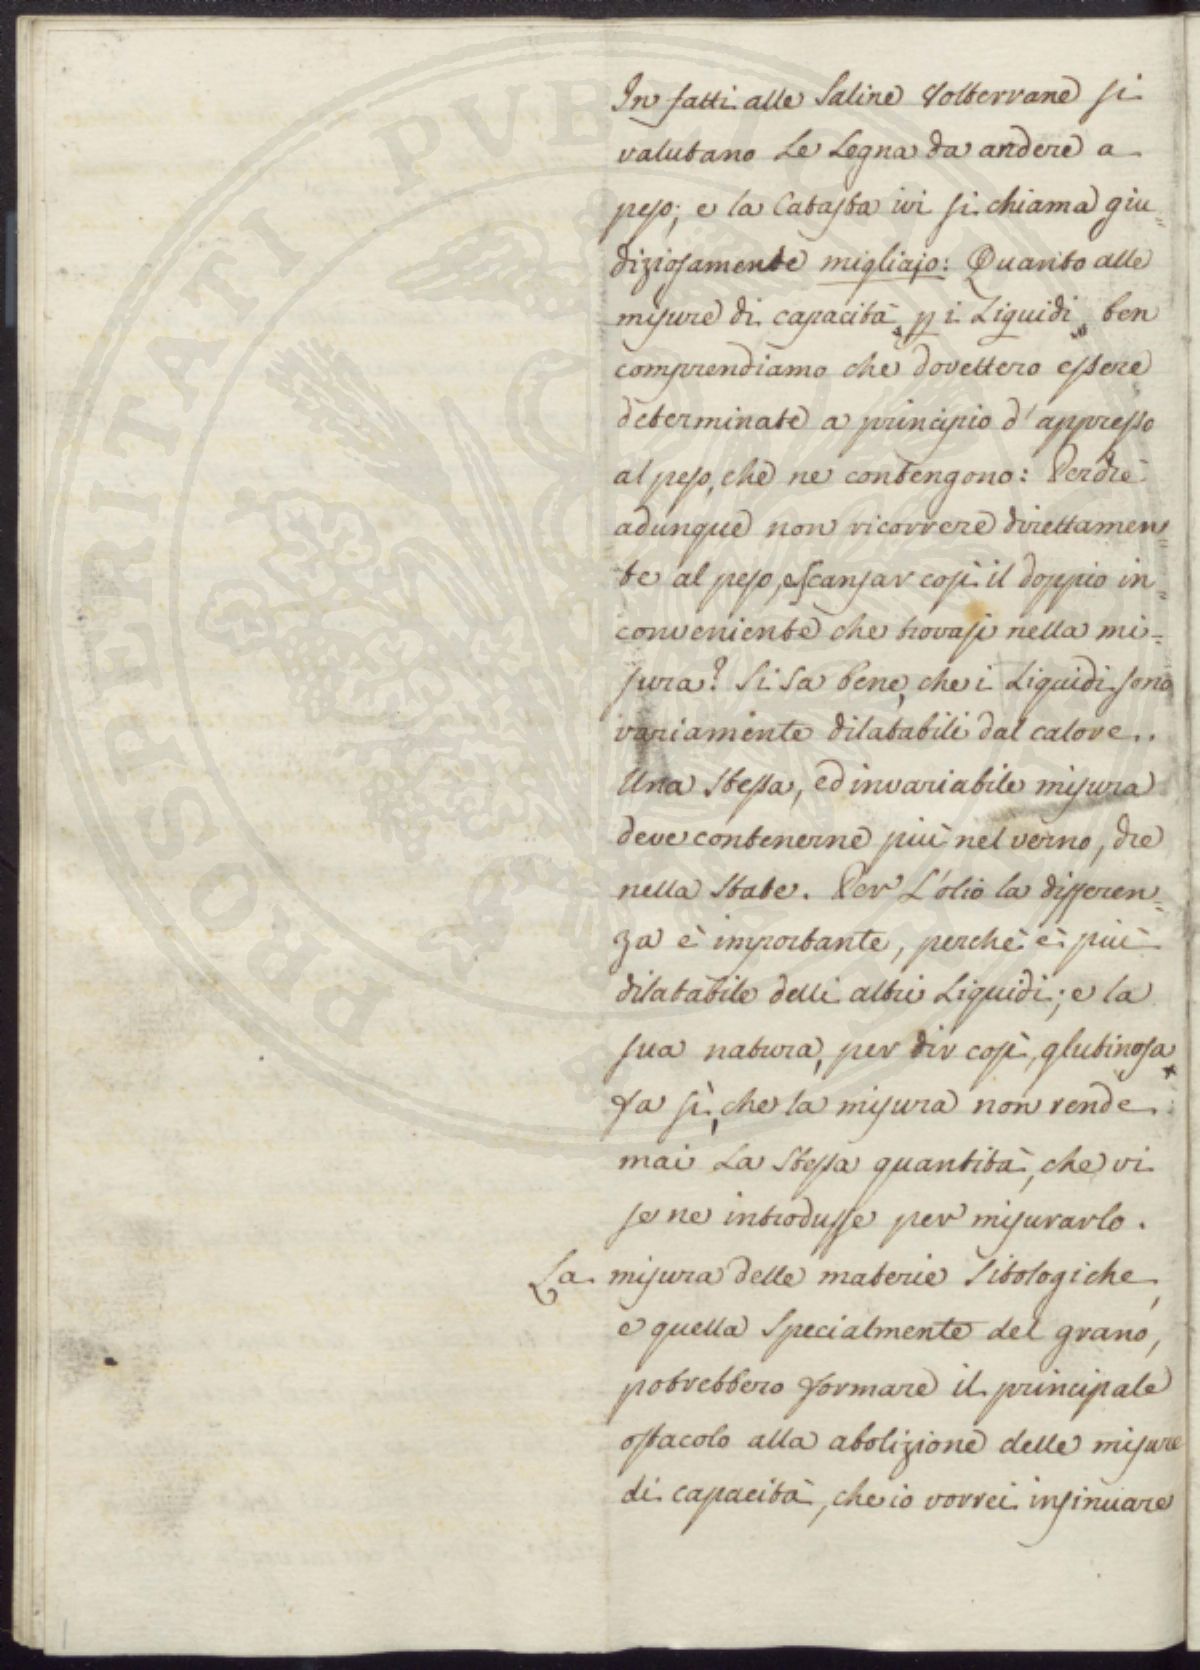 In fatti alle Saline Volterrane si
valutano Le Legna da andere a
peso; e la Catasta ivi si chiama giu=
diziosamente migliajo: Quanto alle
misure di capacità, p i Liquidi, ben
comprendiamo che dovettero essere
determinate a principio d'appresso
al peso, che ne contengono: Perchè
adunque non ricorrere direttamen=
te al peso, e scansar così il doppio in=
conveniente che trovasi nella mi=
sura? Si sa bene, che i Liquidi sono
variamente dilatabili dal calore.
Una stessa, ed invariabile misura
deve contenerne più nel verno, che
nella state. Per L'olio la differen=
za è importante, perchè è più
dilatabile delli altri Liquidi; e la
sua natura, per dir così, glutinosa,
fa sì, che la misura non rende
mai La stessa quantità, che vi
se ne introdusse per misurarlo.
La misura delle materie Sitologiche,
e quella specialmente del grano,
potrebbero formare il principale
ostacolo alla abolizione delle misure
di capacità, che io vorrei insinuare
PROSPERITATI PUBLICAE